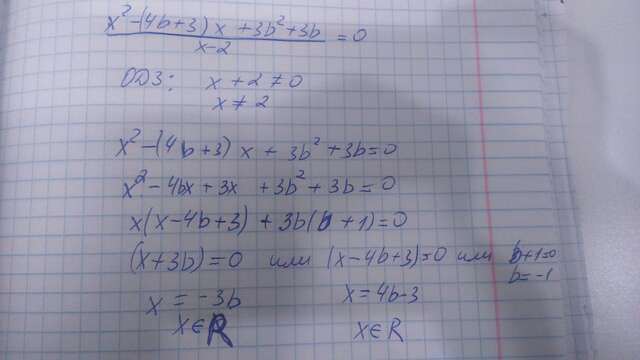 x²-(4b+3)x+3b²+3b
x-2 =0
ОДЗ: x+2≠0
x≠2
x²-(4b+3)x+3b²+3b=0
x²-4bx+3x+3b²+3b=0
x(x-4b+3)+3b(b+1)=0
(x+3b)=0 или (x-4b+3)=0 или b+1=0
b=-1
x=-3b x=4b-3
x∈R x∈R